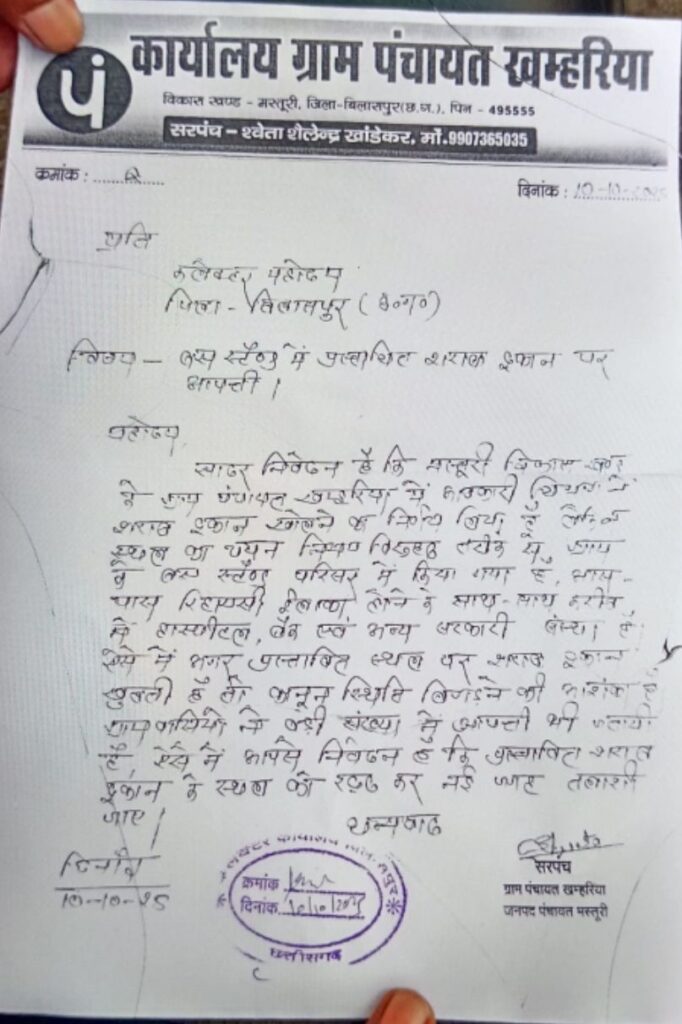 पं
कार्यालय ग्राम पंचायत खम्हरिया
विकास खण्ड - मस्तूरी, जिला-बिलासपुर(छ.ग.), पिन - 495555
सरपंच - श्वेता शैलेन्द्र खांडेकर, मों.9907365035
क्रमांक :
दिनांक : 10-10-2025
प्रति
कलेक्टर महोदय
जिला - बिलासपुर (छ०ग०)
विषय - बस स्टैण्ड में प्रस्तावित शराब दुकान पर
आपत्ती ।
महोदय,
सादर निवेदन है कि मस्तूरी विकास खण्ड
के ग्राम पंचायत खम्हरिया में आबकारी विभाग ने
शराब दुकान खोलने का निर्णय लिया है लेकिन
स्थल का चयन नियम विरुद्ध तरीके से ग्राम
के बस स्टैण्ड परिसर में किया गया है, आस-
पास रिहायसी ईलाका होने के साथ-साथ करीब
में हास्पीटल, बैंक एवं अन्य सरकारी संस्था है
ऐसे में अगर प्रस्तावित स्थल पर शराब दुकान
खुलती है तो कानून स्थिति बिगडने की आशंका है
ग्रामवासियों ने बडी संख्या में आपत्ती भी जतायी
है, ऐसे में आपसे निवेदन है कि प्रस्तावित शराब
दुकान के स्थल को रद्द कर नई जगह तलाशी
जाए ।
धन्यवाद
दिनाँक
10-10-25
क्रमांक
दिनांक 10/10/2025
छत्तीसगढ़
सरपंच
ग्राम पंचायत खम्हरिया
जनपद पंचायत मस्तूरी